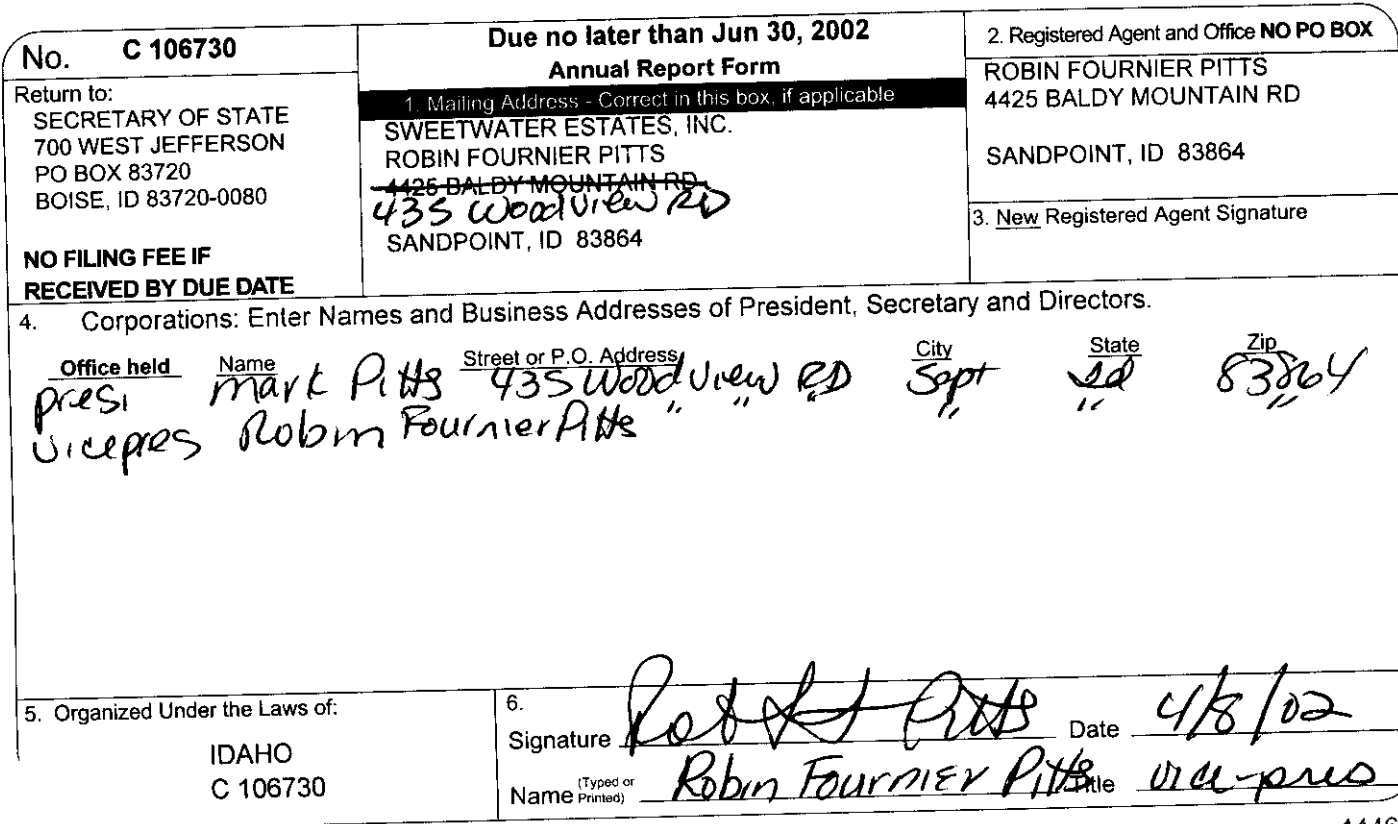 No. C 106730
Return to:
SECRETARY OF STATE
700 WEST JEFFERSON
PO BOX 83720
BOISE, ID 83720-0080
NO FILING FEE IF
RECEIVED BY DUE DATE
Due no later than Jun 30, 2002
Annual Report Form
1. Mailing Address - Correct in this box, if applicable
SWEETWATER ESTATES, INC.
ROBIN FOURNIER PITTS
4425 BALDY MOUNTAIN RD
435 Wood View RD
SANDPOINT, ID 83864
2. Registered Agent and Office NO PO BOX
ROBIN FOURNIER PITTS
4425 BALDY MOUNTAIN RD
SANDPOINT, ID 83864
3. New Registered Agent Signature
4. Corporations: Enter Names and Business Addresses of President, Secretary and Directors.
Office held Name Street or P.O. Address City State Zip
presi Mark Pitts 435 Wood View RD Sept Id 83864
vicepres Robin Fournier Pitts " " " " " "
5. Organized Under the Laws of:
IDAHO
C 106730
6.
Signature Pitts Date 4/8/02
Name (Typed or Printed) Robin Fournier Pitts Title vice-pres